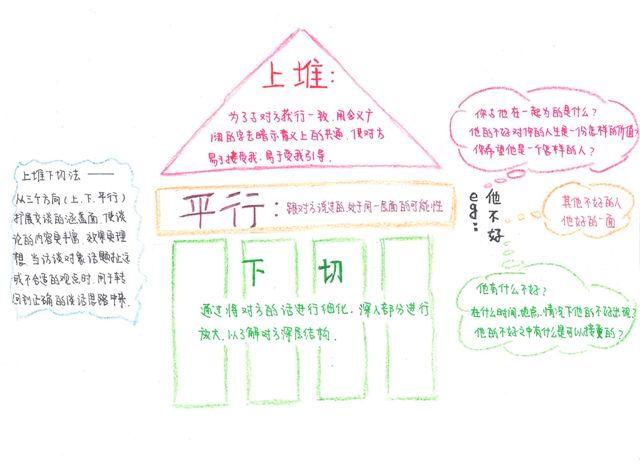 上堆:
为了与对方获行一致，用含义广
阔的字去暗示意义上的共通，使对方
易于接受我，易于受我引导.
上堆下切法 ——
从三个方向(上、下、平行)
扩展交谈的涵盖面，使谈
论的内容更丰富，效果更理
想，当访谈对象话题扯远
或不合适的观点时，用于转
回到正确的谈话思路中来.
平行:跟对方说过的，处于同一层面的可能性
下切
通过将对方的话进行细化，深入部分进行
放大，以了解对方深层结构.
你与他在一起为的是什么?
他的不好对你的人生是一份怎样的价值?
你希望他是一个怎样的人?
eg: 他不好
其他不好的人
他好的一面
他有什么不好?
在什么时间、地点、情况下他的不好出现?
他的不好之中有什么是可以接受的?